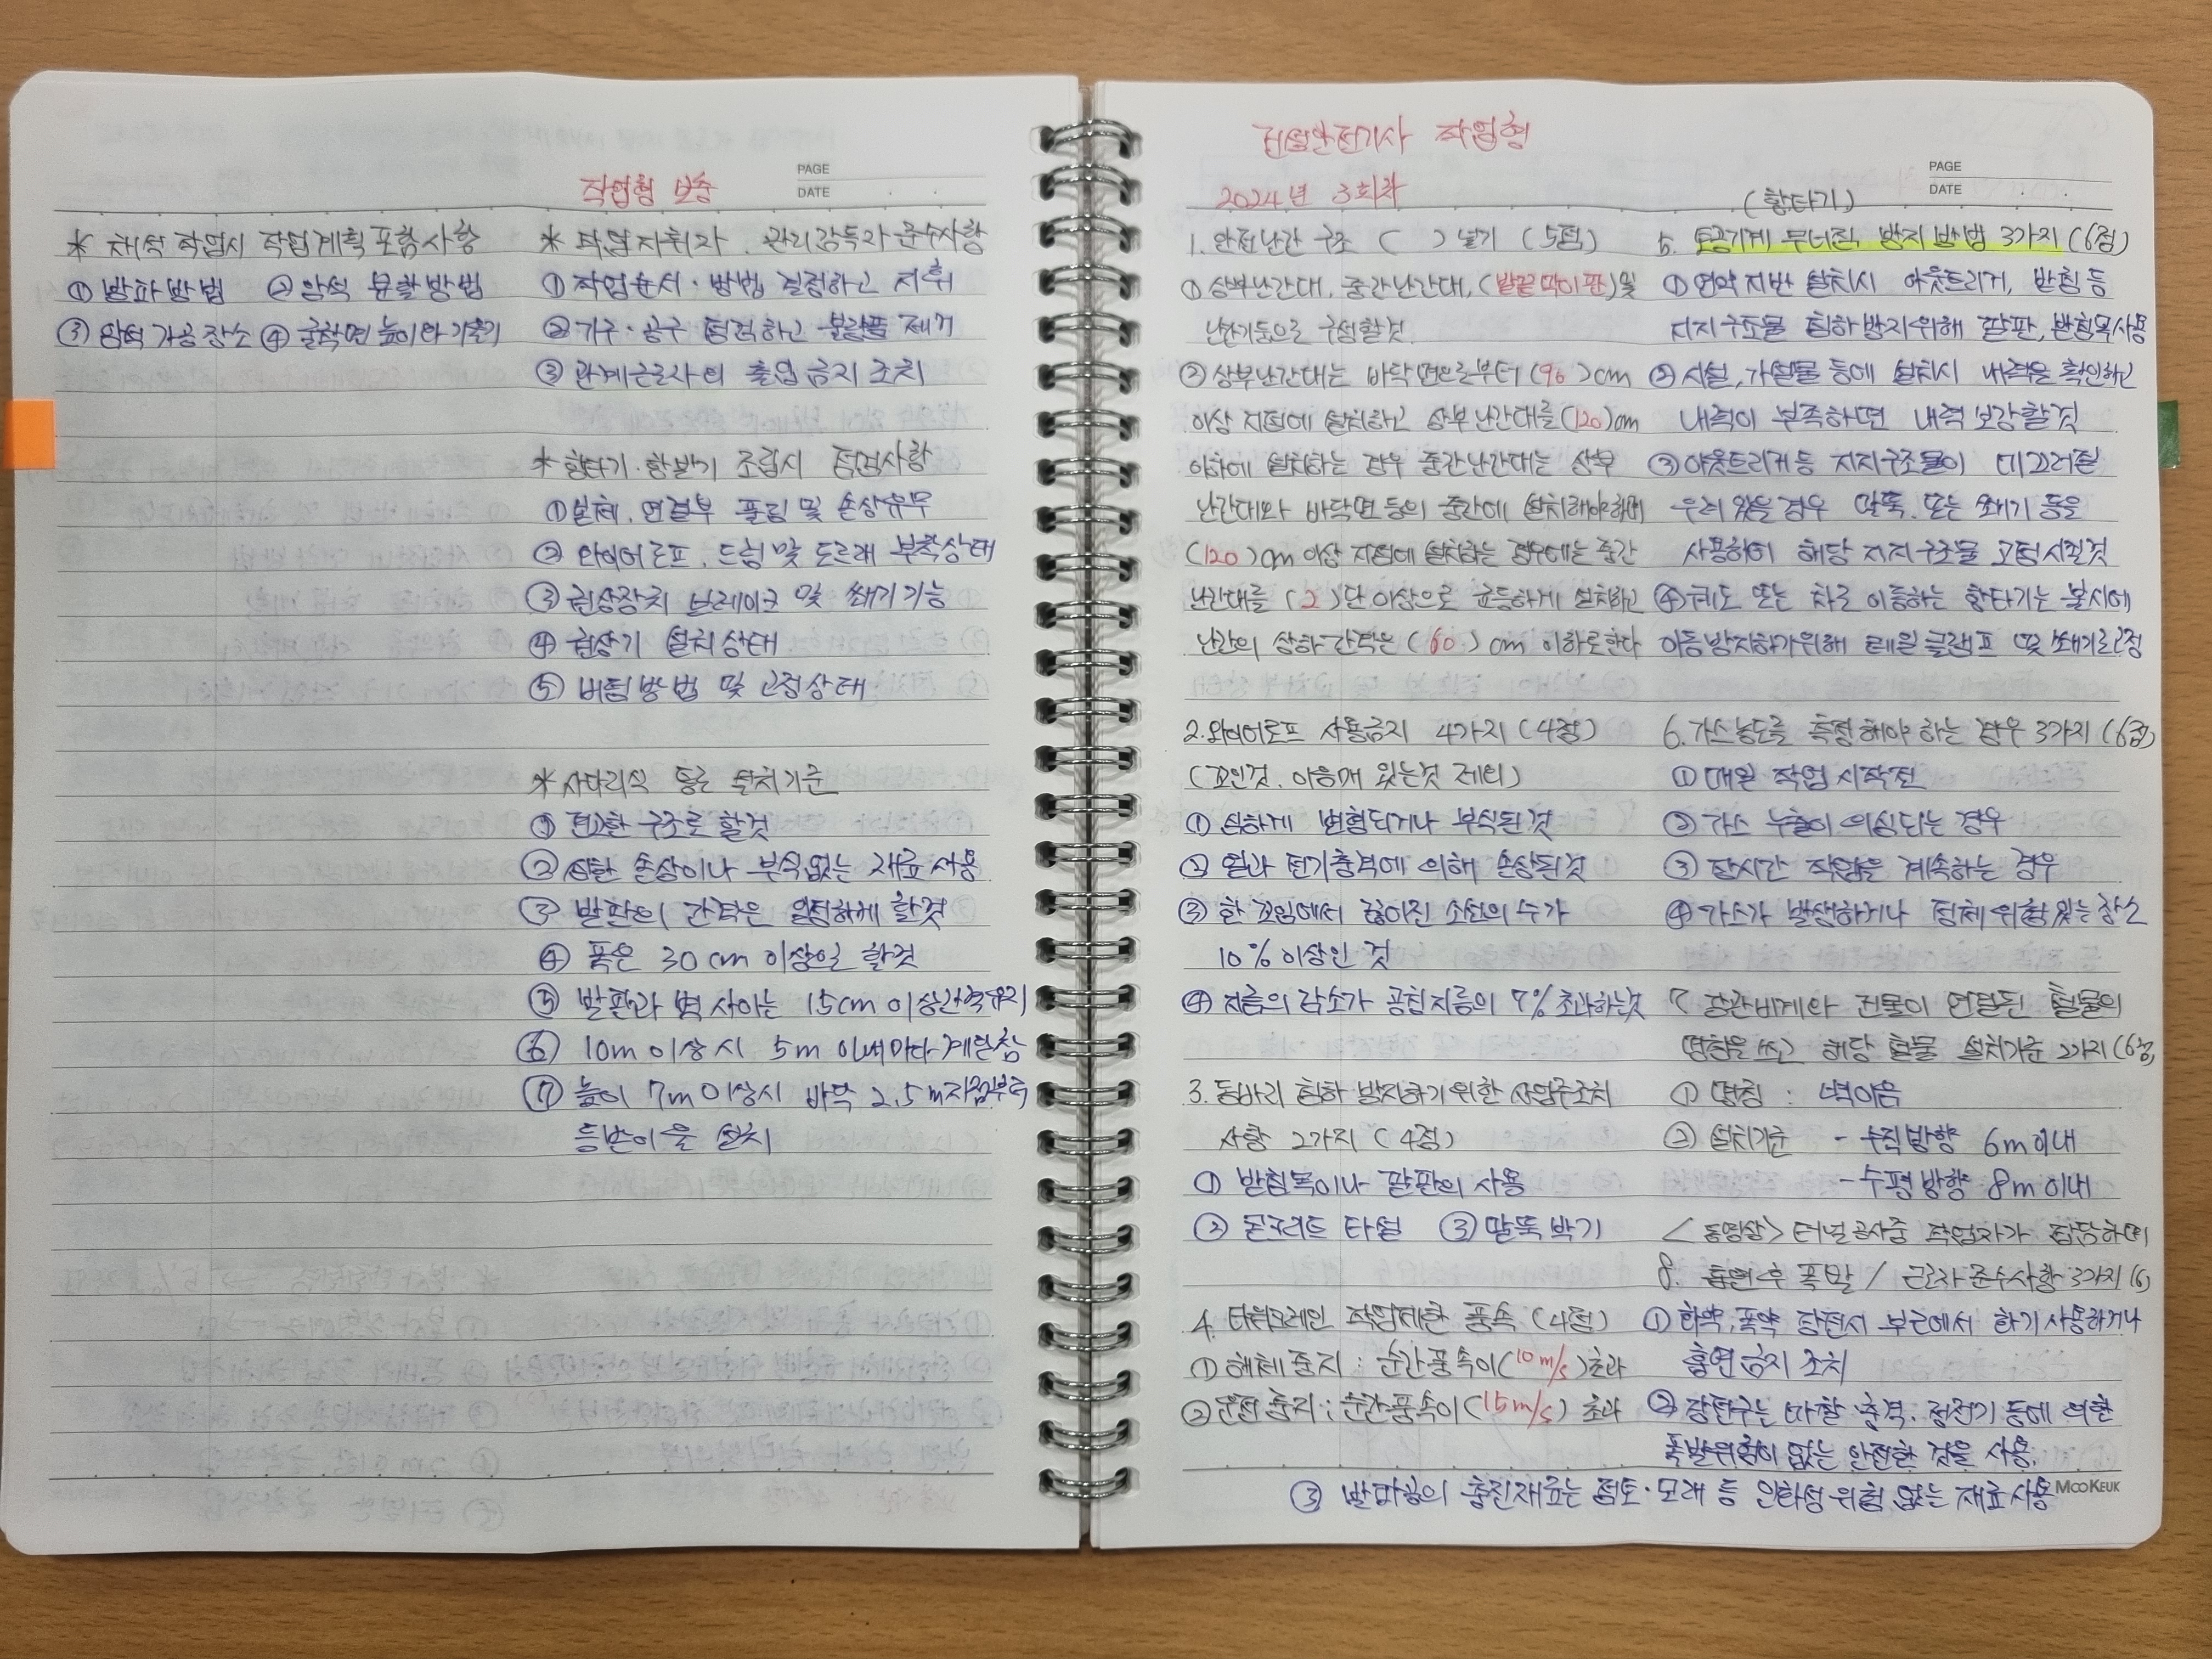 작업형 보충
PAGE
DATE
* 채석 작업시 작업계획 포함사항
① 발파방법 ② 암석 분할방법
③ 암석 가공장소 ④ 굴착면 높이와 기울기
* 작업지휘자, 관리감독자 준수사항
① 작업순서·방법 결정하고 지휘
② 기구·공구 점검하고 불량품 제거
③ 관계근로자외 출입 금지 조치
* 항타기·항발기 조립시 점검사항
① 본체, 연결부 풀림 및 손상유무
② 와이어로프, 드럼 및 도르래 부착상태
③ 권상장치 브레이크 및 쐐기 기능
④ 권상기 설치상태
⑤ 버팀방법 및 고정상태
* 사다리식 통로 설치기준
① 견고한 구조로 할것
② 심한 손상이나 부식없는 재료 사용
③ 발판의 간격은 일정하게 할것
④ 폭은 30cm 이상으로 할것
⑤ 발판과 벽 사이는 15cm 이상간격유지
⑥ 10m 이상시 5m 이내마다 계단참
⑦ 높이 7m 이상시 바닥 2.5m지점부터
등받이울 설치
건설안전기사 작업형
2024년 3회차
PAGE
DATE
1. 안전난간 구조 ( ) 넣기 (5점)
① 상부난간대, 중간난간대, (발끝막이판) 및
난간기둥으로 구성할것
② 상부난간대는 바닥면으로부터 (90)cm
이상 지점에 설치하고 상부난간대를 (120)cm
이하에 설치하는 경우 중간난간대는 상부
난간대와 바닥면 등의 중간에 설치해야하며
(120)cm 이상 지점에 설치하는 경우에는 중간
난간대를 (2)단 이상으로 균등하게 설치하고
난간의 상하 간격은 (60)cm 이하로한다
2. 와이어로프 사용금지 4가지 (4점)
(꼬인것, 이음매 있는것 제외)
① 심하게 변형되거나 부식된 것
② 열과 전기충격에 의해 손상된것
③ 한 꼬임에서 끊어진 소선의 수가
10% 이상인 것
④ 지름의 감소가 공칭지름의 7% 초과하는것
3. 동바리 침하 방지하기 위한 사업주조치
사항 2가지 (4점)
① 받침목이나 깔판의 사용
② 콘크리트 타설 ③ 말뚝박기
4. 타워크레인 작업제한 풍속 (4점)
① 해체 중지 : 순간풍속이 (10m/s) 초과
② 운전 중지 : 순간풍속이 (15m/s) 초과
(항타기)
5. 토공기계 무너짐 방지 방법 3가지 (6점)
① 연약지반 설치시 아웃트리거, 받침 등
지지구조물 침하방지위해 깔판, 받침목사용
② 시설, 가설물 등에 설치시 내력을 확인하고
내력이 부족하면 내력 보강할것
③ 아웃트리거 등 지지구조물이 미끄러질
우려 있을경우 말뚝, 또는 쐐기 등을
사용하여 해당 지지구조물 고정시킬것
④ 궤도 또는 차로 이동하는 항타기는 불시에
이동방지하기위해 레일 클램프 및 쐐기로고정
6. 가스농도를 측정해야 하는 경우 3가지 (6점)
① 매일 작업 시작전
② 가스 누출이 의심되는 경우
③ 장시간 작업을 계속하는 경우
④ 가스가 발생하거나 정체 위험있는 장소
7 강관비계와 건물이 연결된 철물의
명칭을 쓰고 해당 철물 설치기준 2가지 (6점)
① 명칭 : 벽이음
② 설치기준 - 수직방향 6m이내
- 수평방향 8m이내
<동영상> 터널공사중 작업자가 장약하며
8. 흡연 후 폭발 / 근로자 준수사항 3가지 (6)
① 화약, 폭약 장전시 부근에서 화기 사용하거나
흡연 금지 조치
② 장전구는 마찰·충격·정전기 등에 의한
폭발위험이 없는 안전한 것을 사용.
③ 발파공의 충진재료는 점토·모래 등 인화성 위험 없는 재료사용
MOOKEUK